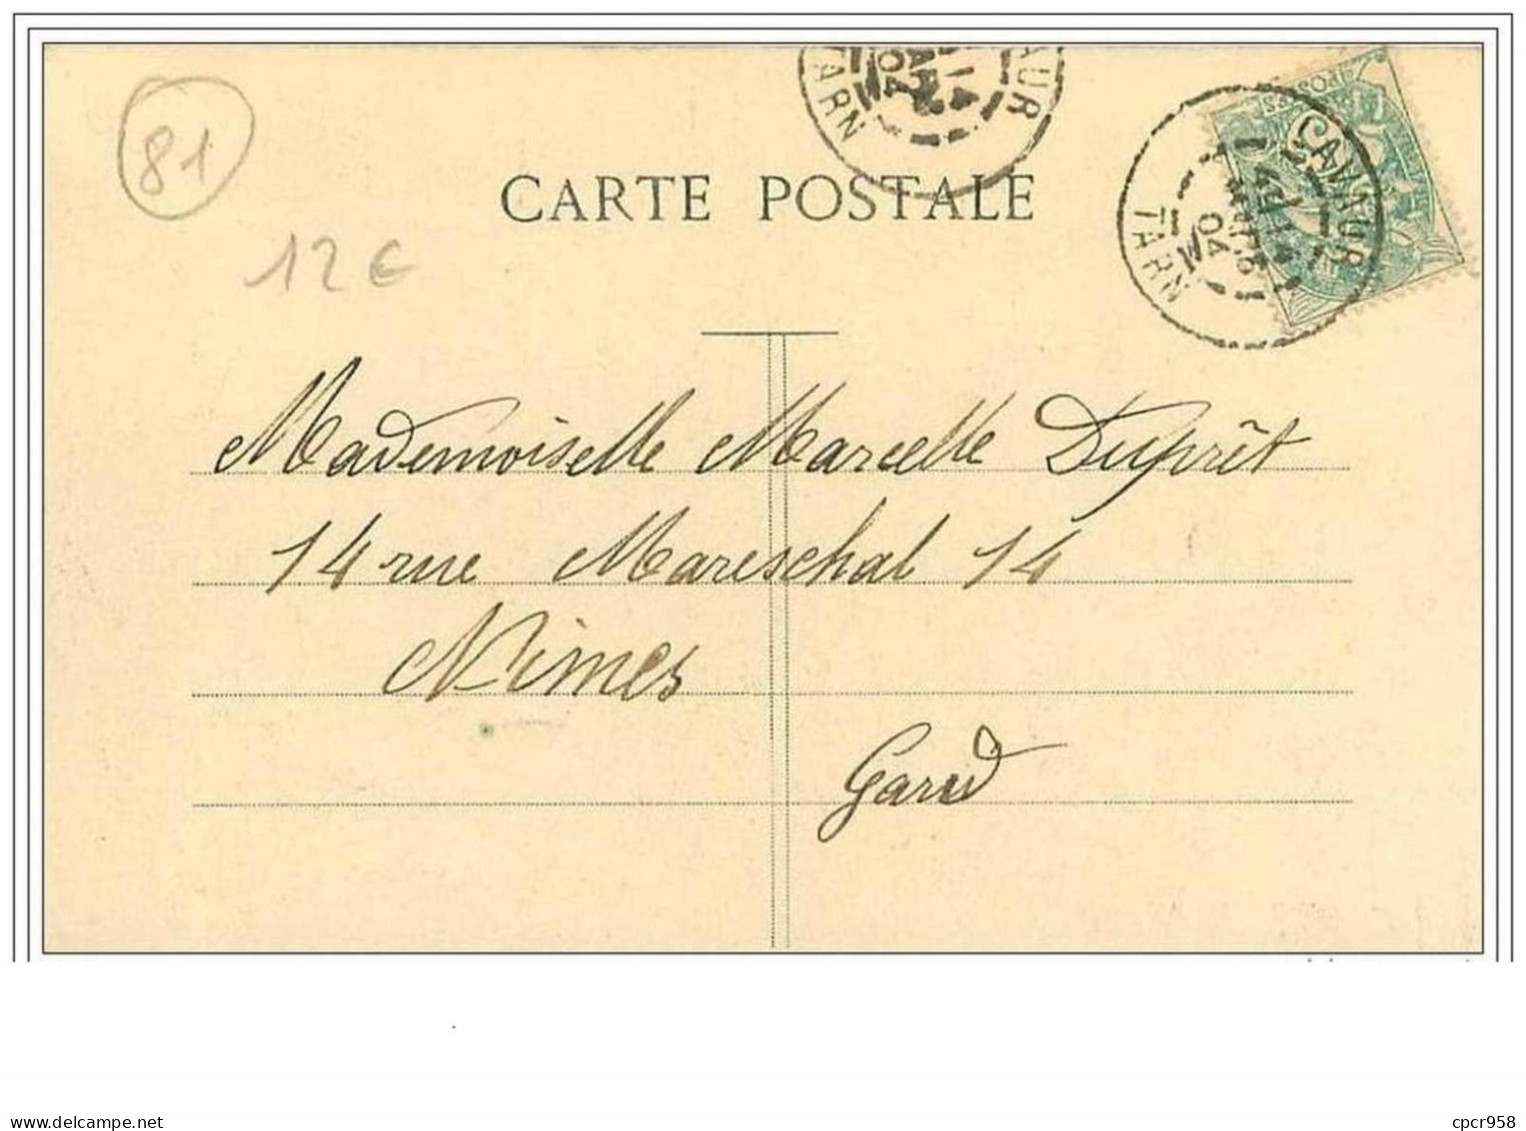 81
12 €
CARTE POSTALE
AUR
TARN
04
LAVAUR
TARN
04
POSTES
Mademoiselle Marcelle Duprêt
14 rue Mareschal 14
Nimes
Gard
Déposée
cpcr958